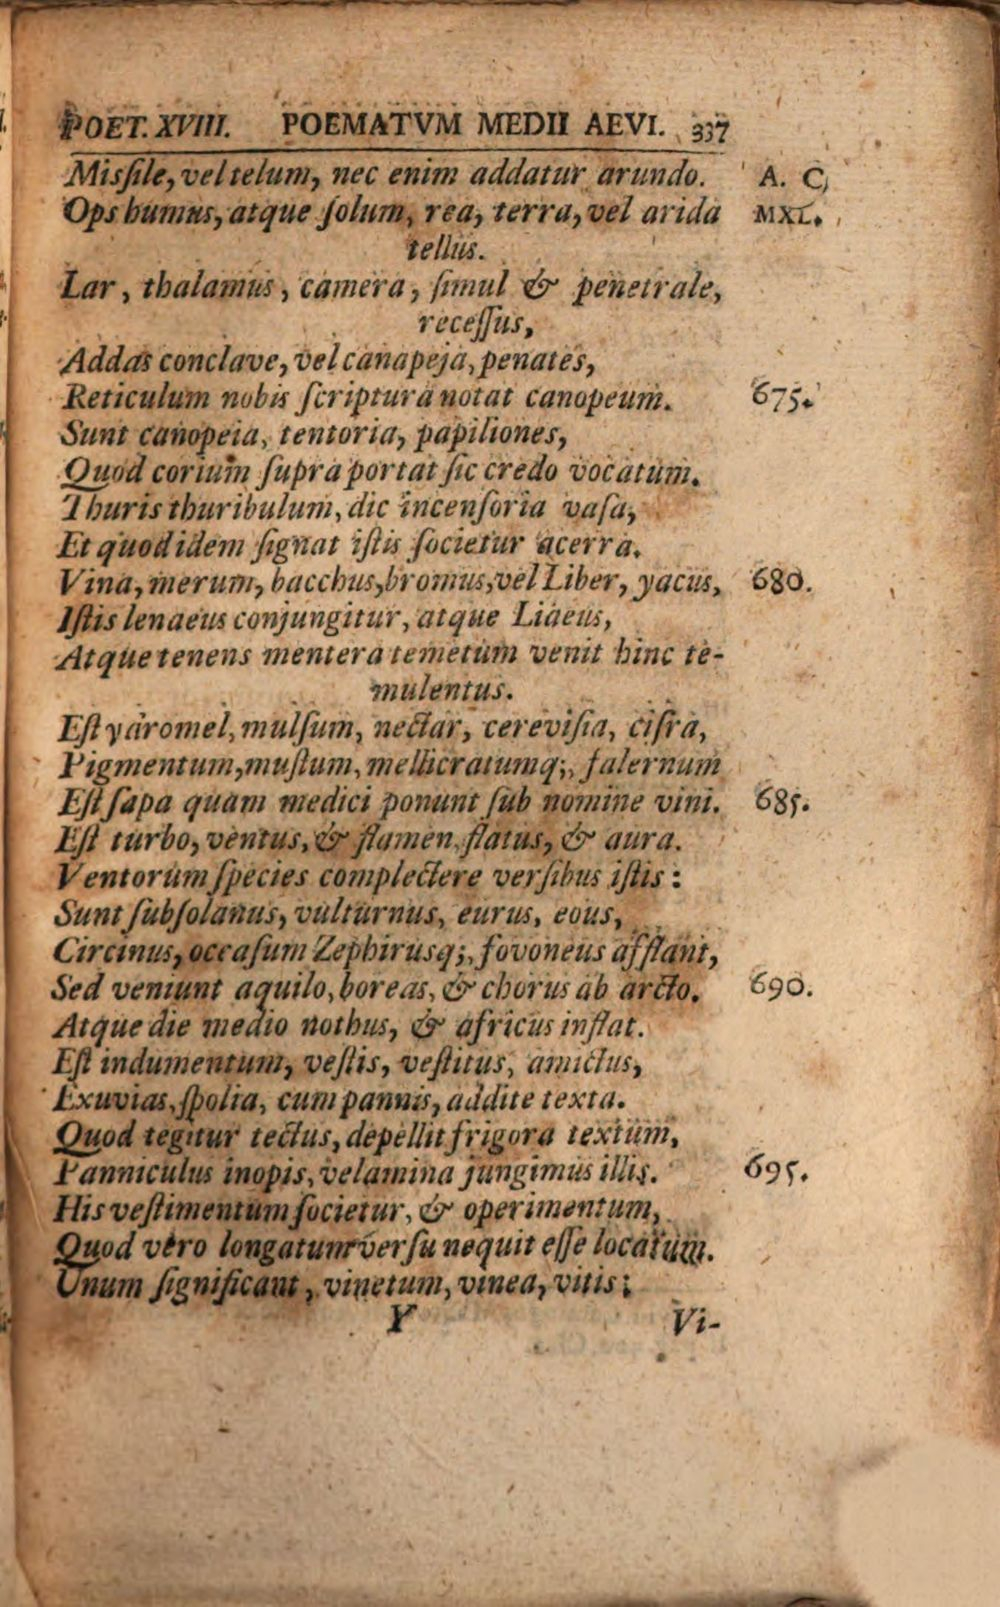 POET. XVIII. POEMATVM MEDII AEVI. 337
Misſile, vel telum, nec enim addatur arundo. A. C,
Ops humus, atque ſolum, rea, terra, vel arida MXL.
tellus.
Lar, thalamus, camera, ſimul & penetrale,
receſſus,
Addas conclave, vel canapeja, penates,
Reticulum nobis ſcriptura notat canopeum. 675.
Sunt canopeia, tentoria, papiliones,
Quod corium ſupra portat ſic credo vocatum.
Thuris thuribulum, dic incenſoria vaſa,
Et quod idem ſignat iſtis ſocietur acerra.
Vina, merum, bacchus, bromus, vel Liber, yacus, 680.
Iſtis lenaeus conjungitur, atque Liaeus,
Atque tenens mentera temetum venit hinc te-
mulentus.
Eſt ydromel, mulſum, nectar, cereviſia, ciſra,
Pigmentum, muſtum, mellicratumq;, falernum
Eſt ſapa quam medici ponunt ſub nomine vini. 685.
Eſt turbo, ventus, & flamen, flatus, & aura.
Ventorum ſpecies complectere verſibus iſtis:
Sunt ſubſolanus, vulturnus, eurus, eous,
Circinus, occaſum Zephirusq;, fovoneus afflant,
Sed veniunt aquilo, boreas, & chorus ab arcto. 690.
Atque die medio nothus, & africus inflat.
Eſt indumentum, veſtis, veſtitus, amictus,
Exuvias, ſpolia, cum pannis, addite texta.
Quod tegitur tectus, depellit frigora textum,
Panniculus inopis, velamina jungimus illis. 695.
His veſtimentum ſocietur, & operimentum,
Quod vero longatum verſu nequit eſſe locatum.
Unum ſignificant, vinetum, vinea, vitis;
Y Vi-